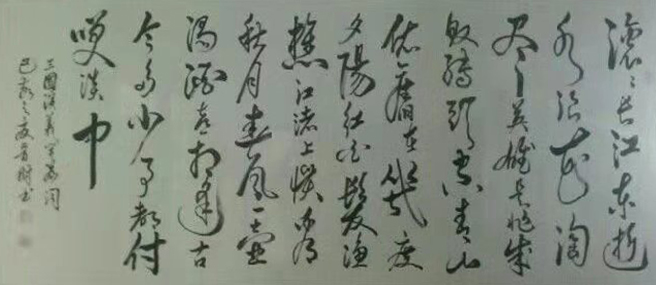 滚〻长江东逝
水浪花淘
尽英雄是非成
败转头空青山
依舊在幾度
夕陽红白髮渔
樵江渚上惯看
秋月春风一壶
浊酒喜相逢古
今多少事都付
笑谈中
三国演义开篇词